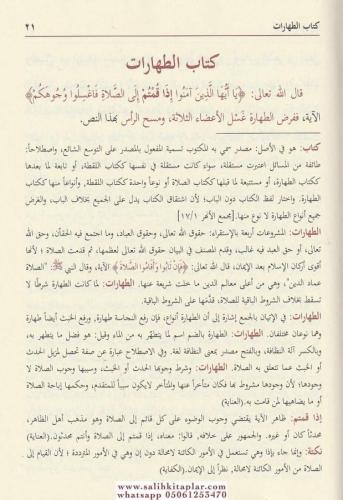 كتاب الطهارات ٢١
كتاب الطهارات
قال الله تعالى: ﴿يَا أَيُّهَا الَّذِينَ آمَنُوا إِذَا قُمْتُمْ إِلَى الصَّلَاةِ فَاغْسِلُوا وُجُوهَكُمْ﴾
الآية، ففرض الطهارة غَسْل الأعضاء الثلاثة، ومسح الرأس بهذا النص.
كتاب: هو في الأصل: مصدر سمي به المكتوب تسمية المفعول بالمصدر على التوسع الشائع، واصطلاحاً:
طائفة من المسائل اعتبرت مستقلة، سواء كانت مستقلة في نفسها ككتاب اللقطة، أو تابعة لما بعدها
ككتاب الطهارة، أو مستتبعة لما قبلها ككتاب الصلاة أو نوعاً واحدة ككتاب اللقطة، وأنواعاً منها ككتاب
الطهارة. واختار لفظ الكتاب دون الباب؛ لأن اشتقاق الكتاب يدل على الجميع بخلاف الباب، والغرض
جميع أنواع الطهارة لا نوع منها. [مجمع الأنهر ١٧/١]
الطهارات: المشروعات أربعة بالإستقراء: حقوق الله تعالى، وحقوق العباد، وما اجتمع فيه الحقان، وحق الله
تعالى، أو حق العبد فيه غالب، وقدم المصنف في البيان حقوق الله تعالى لعظمها، ثم قدمت الصلاة؛ لأنها
أقوى أركان الإسلام بعد الإيمان، قال الله تعالى: ﴿فَإِنْ تَابُوا وَأَقَامُوا الصَّلَاةَ﴾ الآية، وقال النبي ﷺ: "الصلاة
عماد الدين"، وهي من أعلى معالم الدين ما خلت شريعة عنها. الطهارات: لما كانت الطهارة شرطًا لا
تسقط بخلاف الشروط الباقية للصلاة، قدّمها على الشروط الباقية.
الطهارات: في الإتيان بالجمع إشارة إلى أن الطهارة أنواع، فإن رفع النجاسة طهارة، ورفع الخبث أيضاً طهارة
وهما نوعان مختلفان. الطهارات: الطهارة بالضم اسم لما يتطهر به من الماء وقيل: هو فضل ما يتطهر به،
وبالكسر آلة النظافة، وبالفتح مصدر بمعنى النظافة لغة. وفي الاصطلاح عبارة عن صفة تحصل لمزيل الحدث
أو الخبث عما تتعلق به الصلاة. الطهارات: وشرط وجوبها الحدث أو الخبث، وسببها وجوب الصلاة لا
وجودها؛ لأن وجودها مشروط بها فكان متأخراً عنها والمتأخر لايكون سبباً للمتقدم، وحكمها إباحة الصلاة
أو ما يضاهيها لمن قامت به.(العناية)
إذا قمتم: ظاهر الآية يقتضي وجوب الوضوء على كل قائم إلى الصلاة وهو مذهب أهل الظاهر،
محدثًا كان أو غيره. والجمهور على خلافه، قالوا: معناه، إذا قمتم إلى الصلاة وأنتم محدثون.(العناية)
نكتة: وإنما جاء بإذا وهي تستعمل في الأمور الكائنة لا محالة دون إن وهي في الأمور المترددة؛ لأن القيام إلى
الصلاة من الأمور الكائنة لامحالة، نظراً إلى الإيمان.(الكفاية)
www.salihkitaplar.com
whatsapp 05061253470